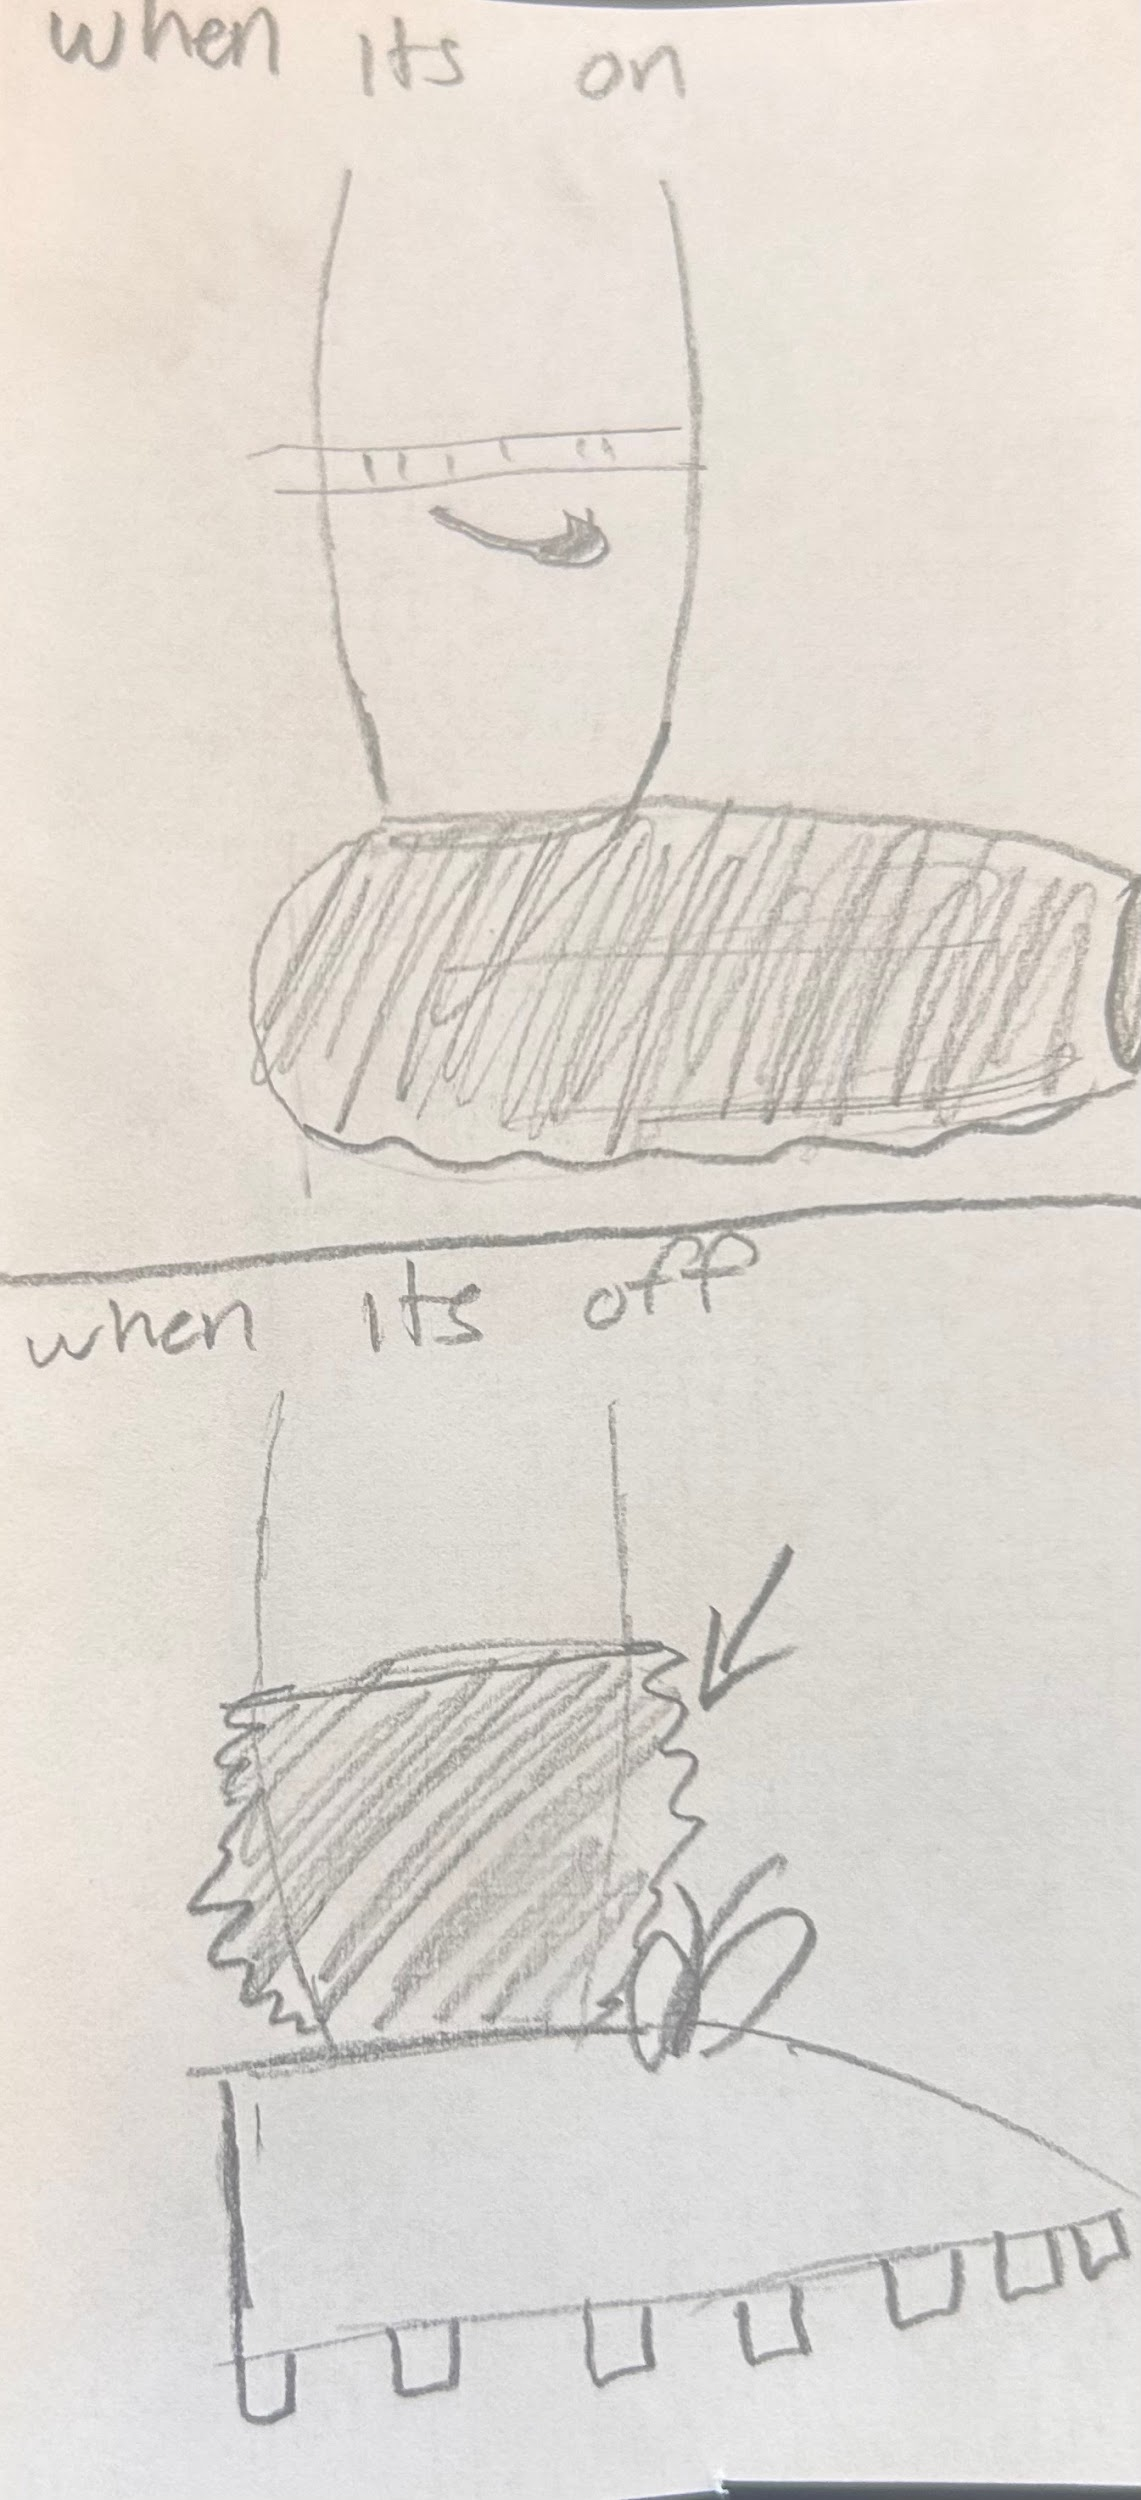 when its on
when its off